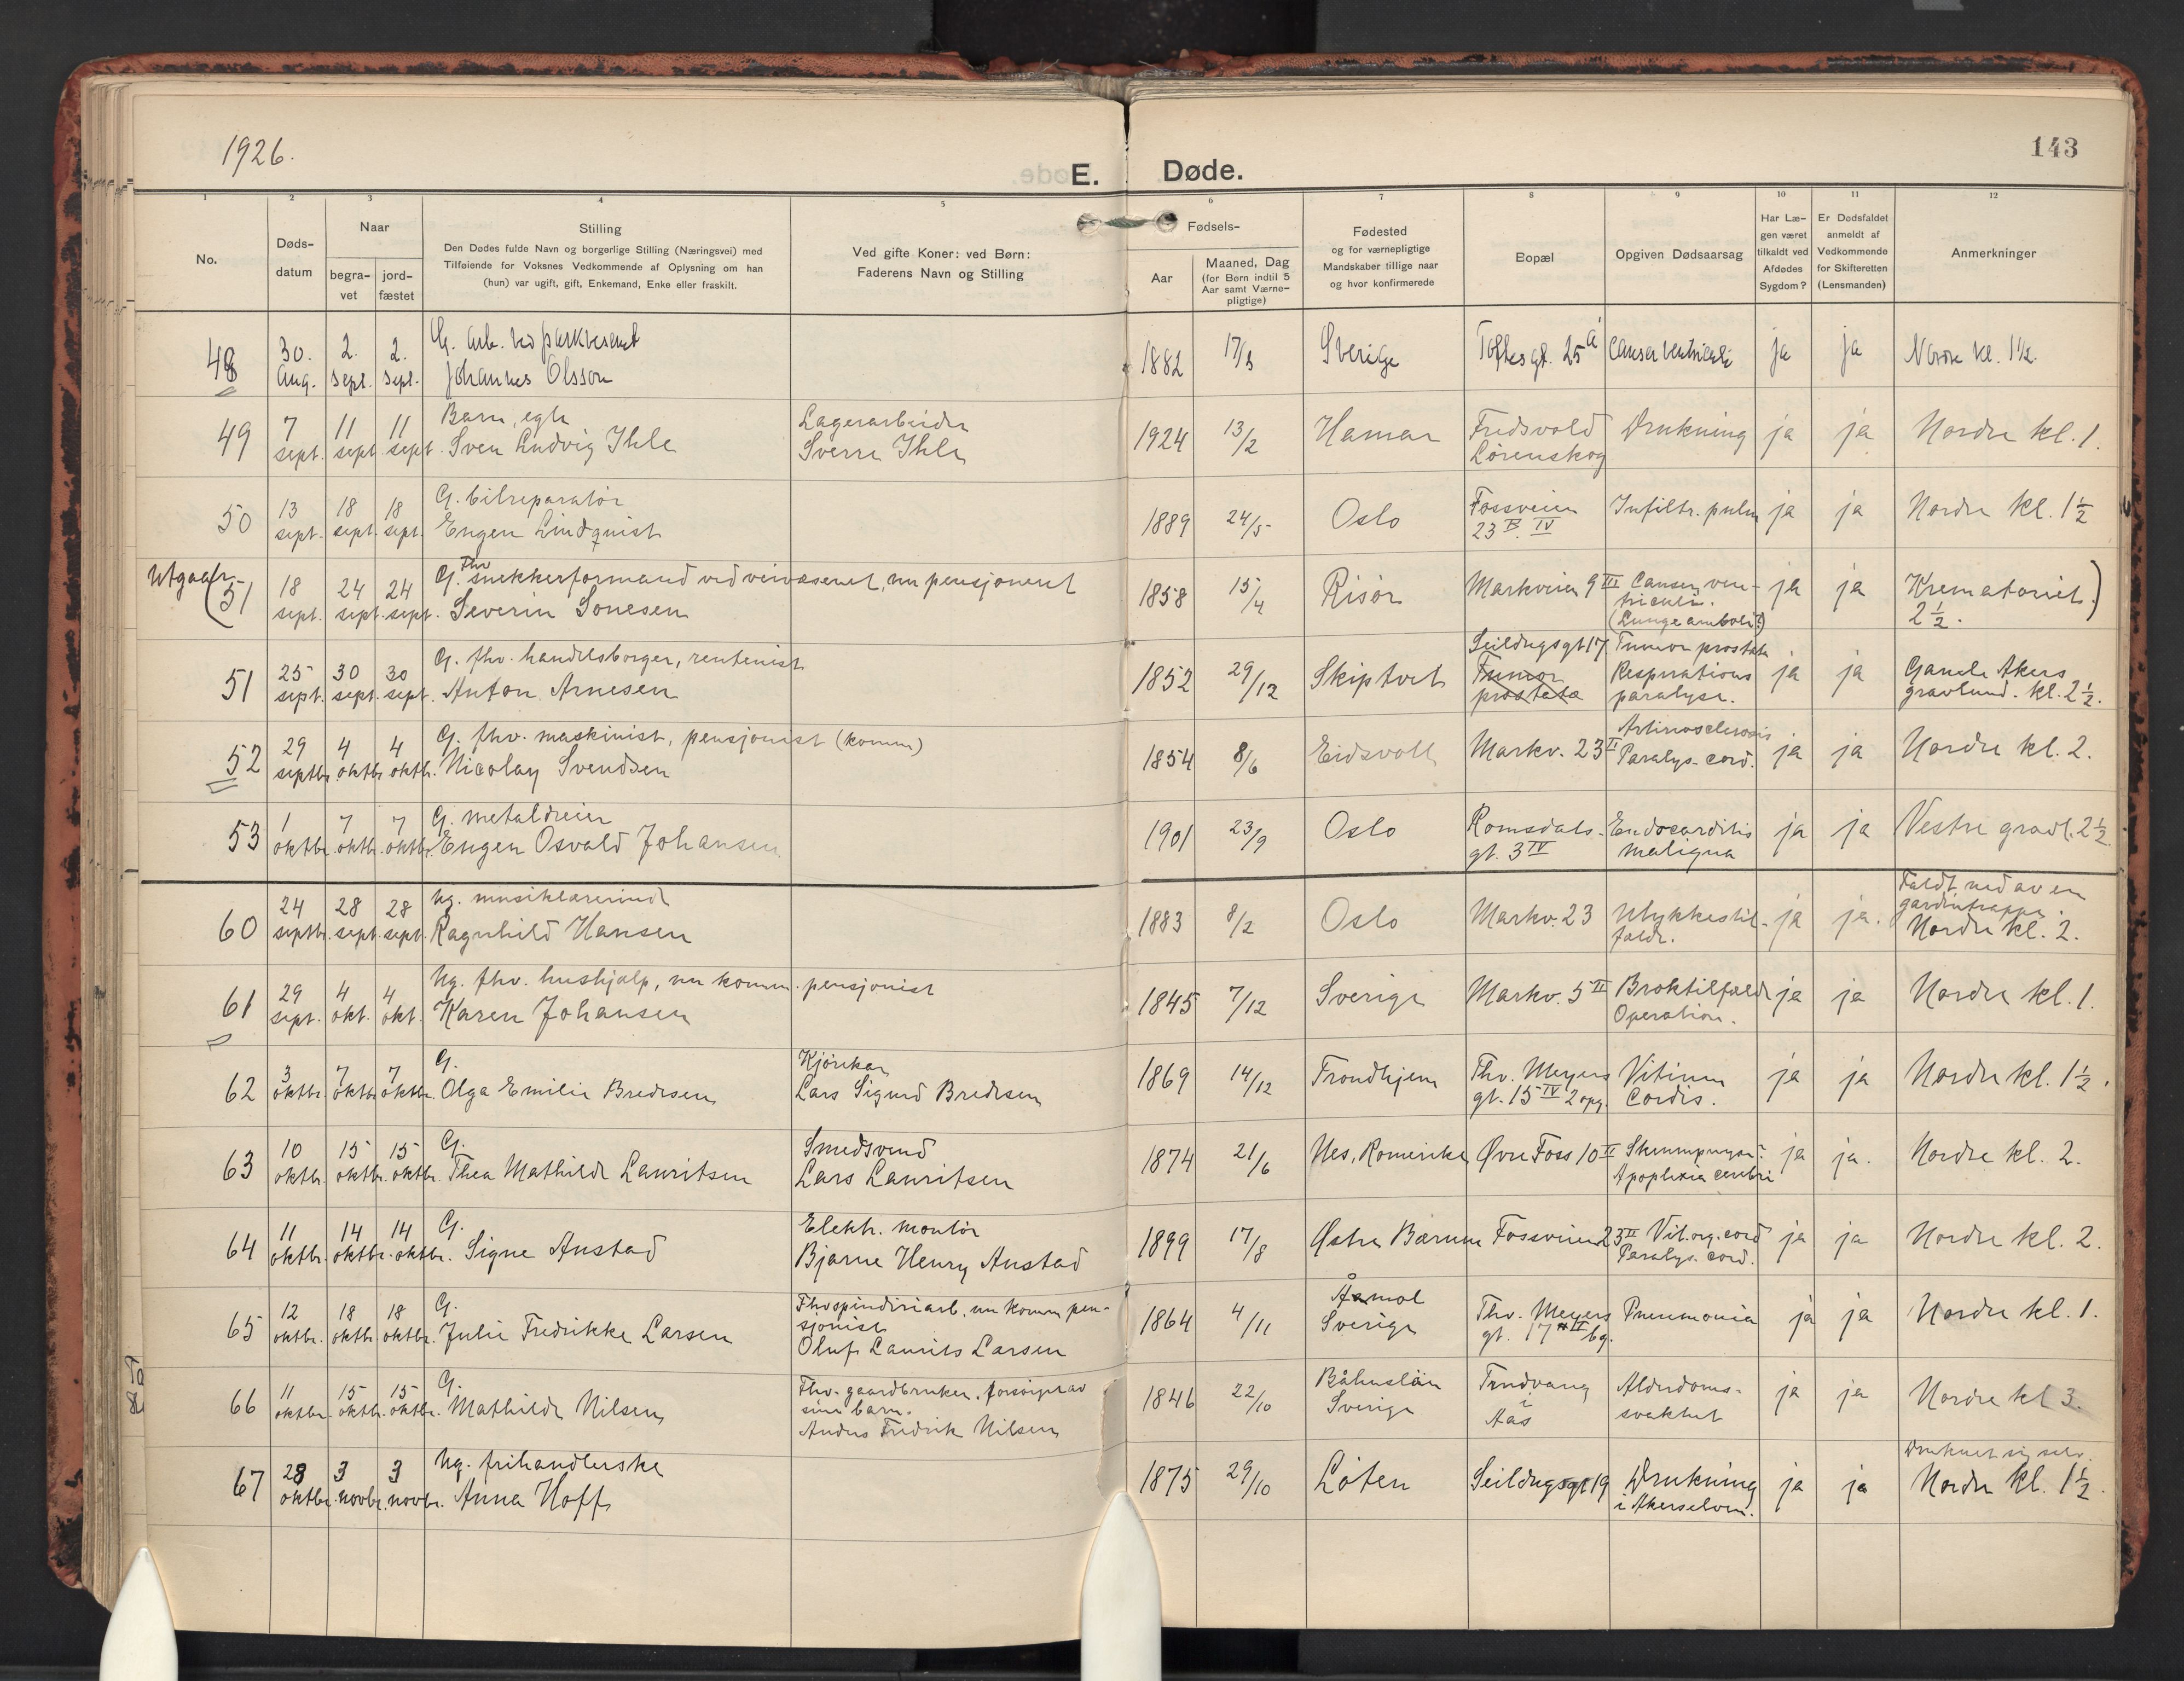 1926.
E. Døde.
143
1 2 3 4 5 6 7 8 9 10 11 12
No.
Døds-
datum
Naar
begra-
vet
jord-
fæstet
Stilling
Den Dødes fulde Navn og borgerlige Stilling (Næringsvei) med
Tilføiende for Voksnes Vedkommende af Oplysning om han
(hun) var ugift, gift, Enkemand, Enke eller fraskilt.
Ved gifte Koner: ved Børn:
Faderens Navn og Stilling
Fødsels-
Aar
Maaned, Dag
(for Børn indtil 5
Aar samt Værne-
pligtige)
Fødested
og for værnepligtige
Mandskaber tillige naar
og hvor konfirmerede
Bopæl
Opgiven Dødsaarsag
Har Læ-
gen været
tilkaldt ved
Afdødes
Sygdom?
Er Dødsfaldet
anmeldt af
Vedkommende
for Skifteretten
(Lensmanden)
Anmerkninger
48 30. Aug. 2. sept. 2. sept. G. Arb. ved parkvesenet
Johannes Olsson
1882 17/3 Sverige Toftesgt. 25 a Cancer ventriculi ja ja Nordre kl. 1½.
49 7 sept. 11 sept 11 sept. Barn, egte
Sven Ludvig Ihle
Lagerarbeider
Sverre Ihle
1924 13/2 Hamar Fredsvold
Lørenskog
Drukning ja ja Nordre kl. 1.
50 13 sept. 18 sept. 18 sept. G. bilreparatør
Eugen Lindquist
1889 24/5 Oslo Fossveien
23 B. IV
Infiltr. pulm ja ja Nordre kl. 1½
Utgaar
(51 18 sept. 24 sept. 24 sept. G. Fhv snekkerformand ved veivæsenet, nu pensjoneret
Severin Sonesen
1858 15/4 Risør Markveien 9 III Cancer ven-
triculi.
(Lungeamboli?)
ja ja Krematoriet.)
2½.
51 25 sept. 30 sept. 30 sept. G. fhv. handelsborger, rentenist
Anton Arnesen
1852 29/12 Skiptvet Seildugsgt 17
Tumor
prostata
Tumor prostata
Respirations
paralyse.
ja ja Gamle Akers
gravlund. kl. 2½.
52 29 septbr. 4 oktbr. 4 oktbr. G. fhv. maskinist, pensjonist (komm)
Nicolay Svendsen
1854 8/6 Eidsvoll Markv. 23 II Arteriosclerosis
Paralys. cord.
ja ja Nordre kl. 2.
53 1 oktbr. 7 oktbr. 7 oktbr. G. metaldreier
Eugen Osvald Johansen
1901 23/9 Oslo Romsdals-
gt. 3 IV
Endocarditis
maligna
ja ja Vestre gravl. 2½
60 24 septbr. 28 sept. 28 sept. Ug. musiklærerinde
Ragnhild Hansen
1883 8/2 Oslo Markv. 23 Ulykkestil-
fælde.
ja ja. Faldt ned av en
gardintrappe.
Nordre kl. 2.
61 29 sept. 4 okt. 4 okt. Ug. fhv. hushjælp, nu komm. pensjonist
Karen Johansen
1845 7/12 Sverige Markv. 5 II Broktilfælde
Operation.
ja ja Nordre kl. 1.
62 3 oktbr. 7 oktbr. 7 oktbr. G.
Olga Emilie Bredesen
Kjørekar
Lars Sigurd Bredesen
1869 14/12 Trondhjem Thv. Meyers
gt. 15 IV 2 opg.
Vitium
Cordis.
ja ja Nordre kl. 1½.
63 10 oktbr. 15 oktbr. 15 oktbr. G.
Thea Mathilde Lauritsen
Smedsvend
Lars Lauritsen
1874 21/6 Nes, Romerike Øvre Foss 10 II Skrumpnyre.
Apoplexia cerebri
ja ja. Nordre kl. 2.
64 11 oktbr. 14 oktbr. 14 oktbr. G.
Signe Anstad
Elektr. montør
Bjarne Henry Anstad
1899 17/8 Østre Bærum Fossveien 23 II Vit. org. cord
Paralys. cord.
ja ja Nordre kl. 2.
65 12 oktbr. 18 oktbr. 18 oktbr. G.
Julie Fredrikke Larsen
Fhv spinderiarb. nu komm pen-
sjonist
Oluf Laurits Larsen
1864 4/11 Åmol
Sverige
Thv. Meyers
gt. 17 IV bg.
Pneumonia ja ja Nordre kl. 1.
66 11 oktbr. 15 oktbr. 15 oktbr. G.
Mathilde Nilsen
Fhv. gaardbruker, forsørget av
sine barn.
Anders Fredrik Nilsen
1846 22/10 Båhuslän
Sverige
Trudvang
i
Aas
Alderdoms-
svakhet
ja ja Nordre kl 3.
67 28 oktbr. 3 novbr. 3 novbr. Ug. frihandlerske
Anna Hoff
1875 29/10 Løten Seildugsgt 19 Drukning
i Akerselven.
ja ja Druknet sig selv.
Nordre kl. 1½.